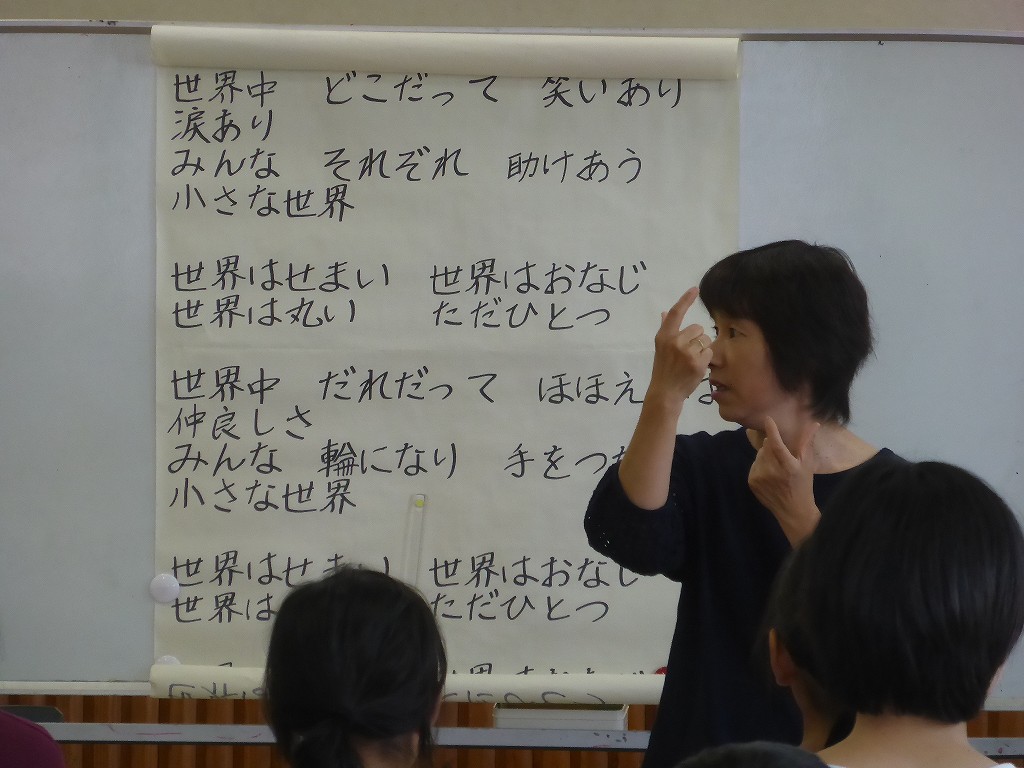 世界中　どこだって　笑いあり
涙あり
みんな　それぞれ　助けあう
小さな世界
世界はせまい　世界はおなじ
世界は丸い　ただひとつ
世界中　だれだって　ほほえ
仲良しさ
みんな　輪になり　手をつ
小さな世界
世界はせまい　世界はおなじ
世界は　ただひとつ